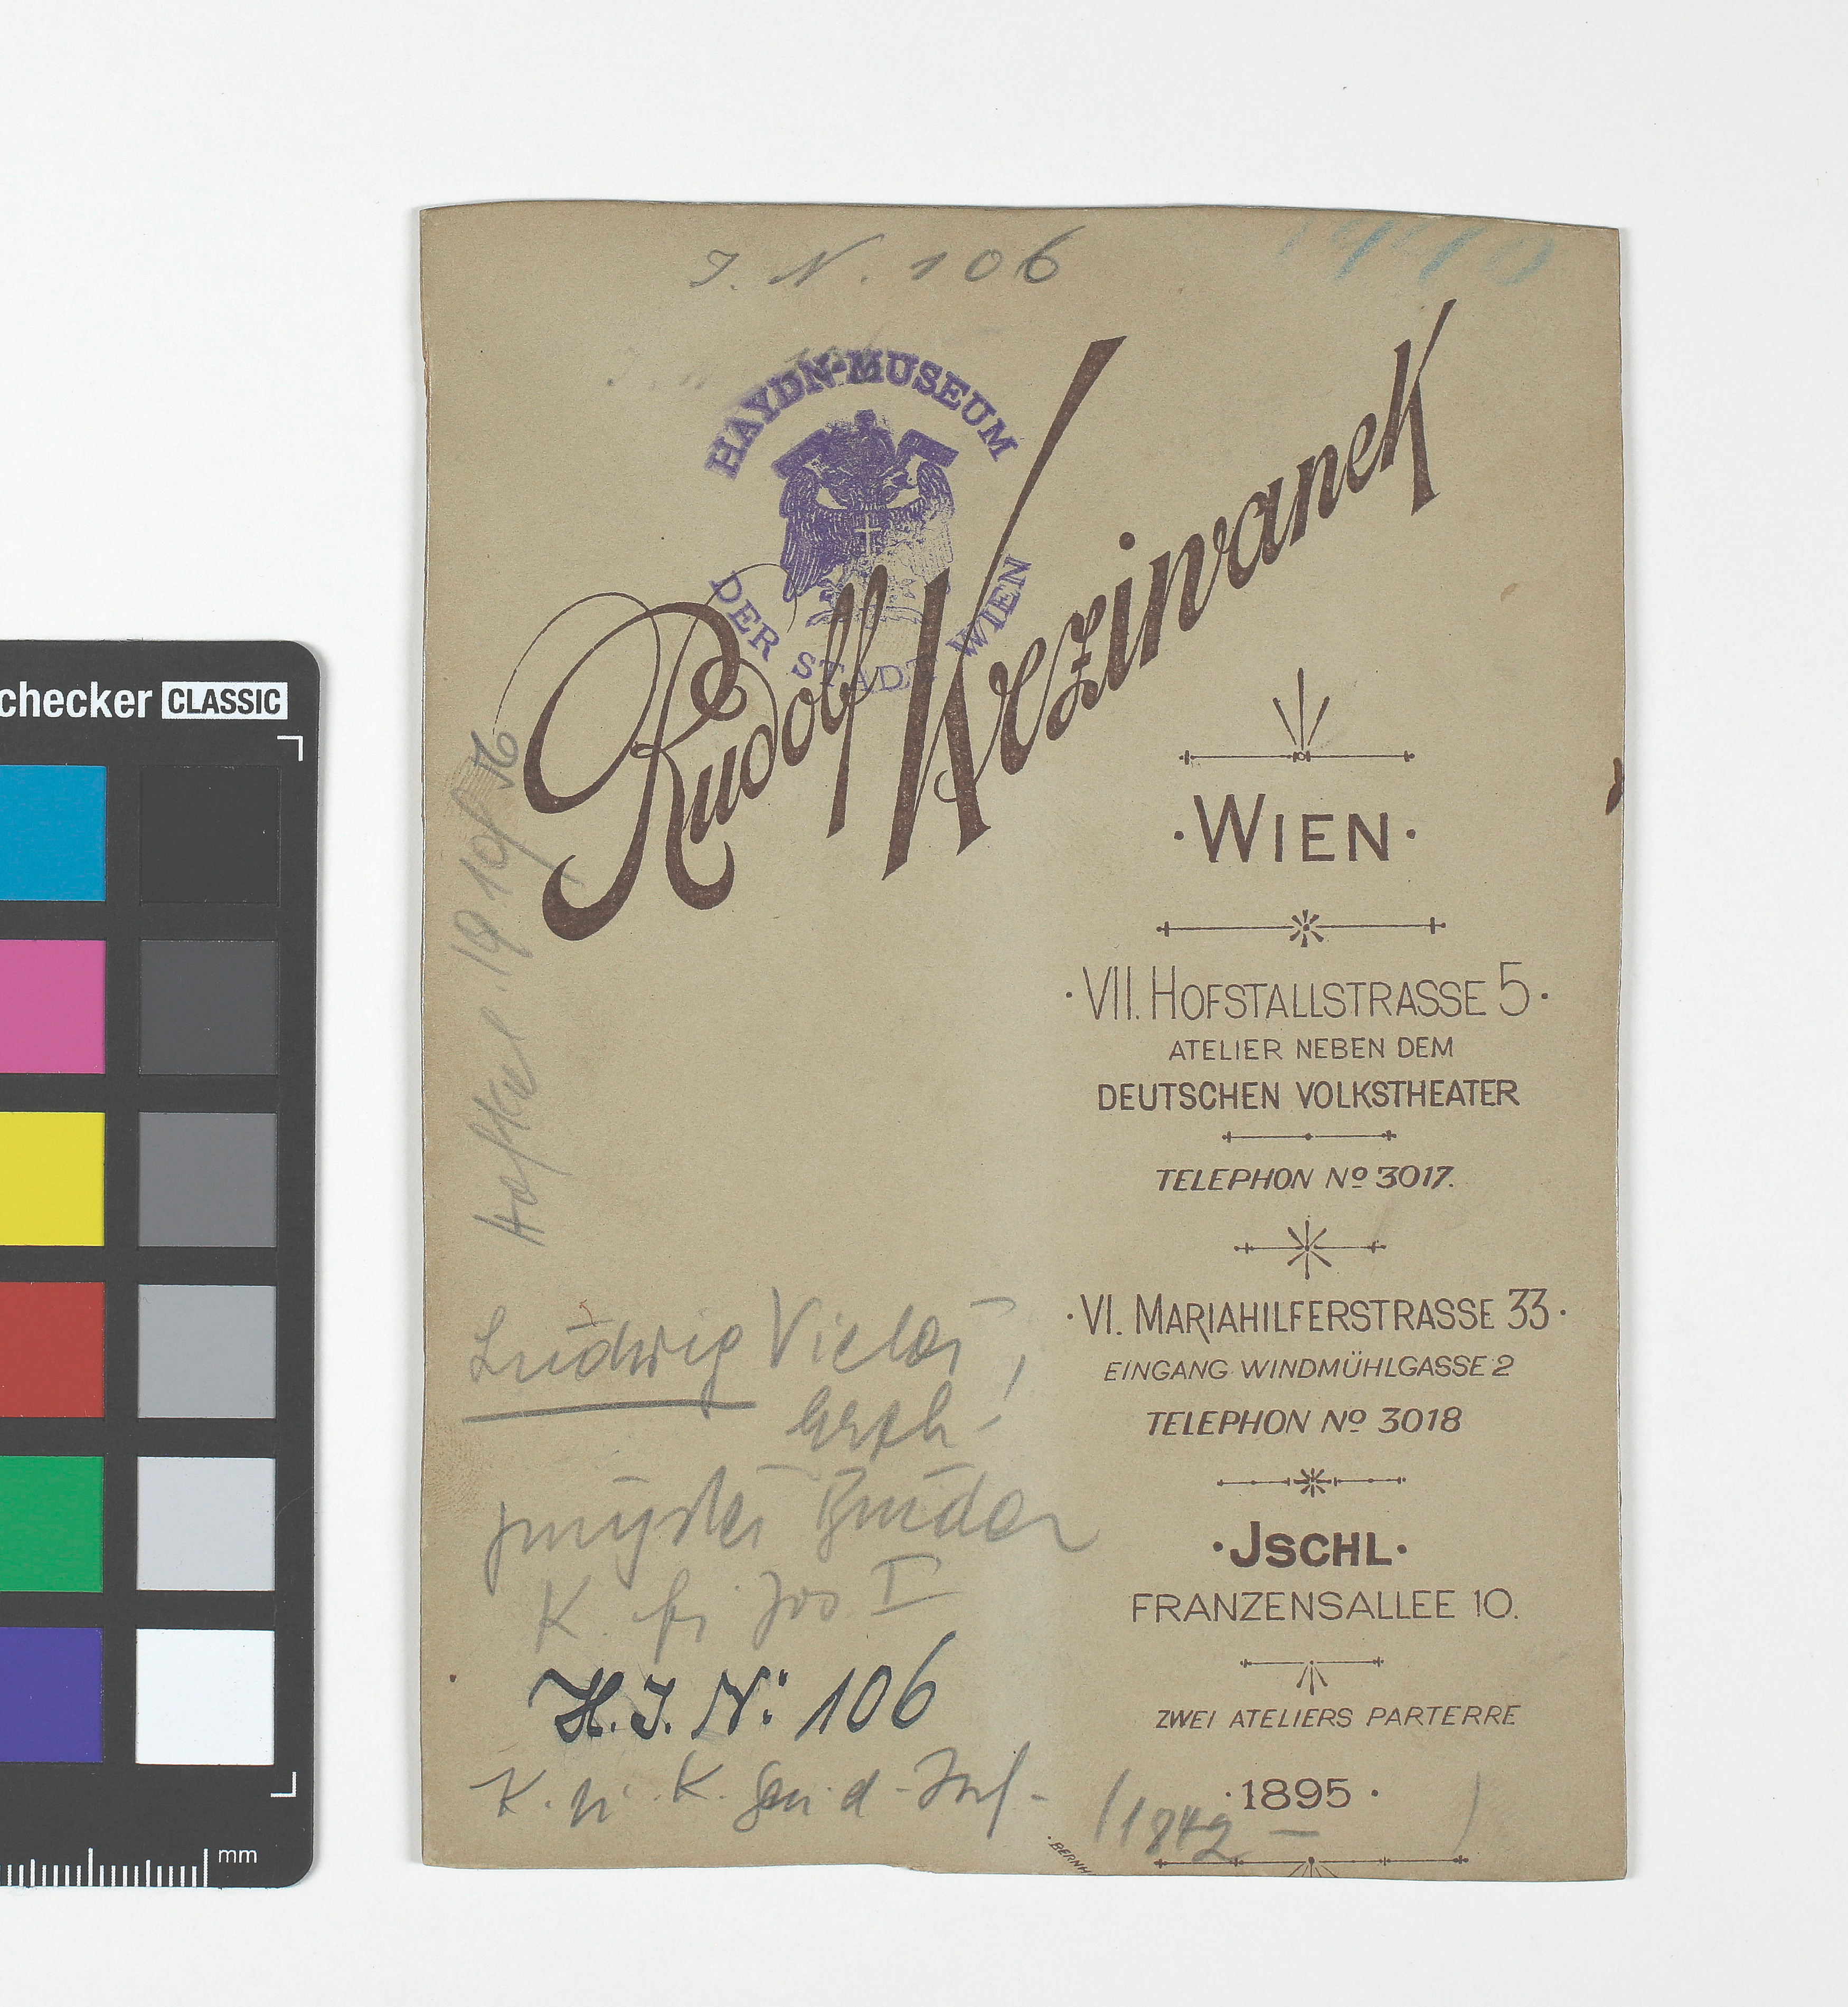 J. N. 106
HAYDN-MUSEUM
DER STADT WIEN
Rudolf Krziwanek
WIEN
VII. HOFSTALLSTRASSE 5
ATELIER NEBEN DEM
DEUTSCHEN VOLKSTHEATER
TELEPHON No 3017.
VI. MARIAHILFERSTRASSE 33
EINGANG WINDMÜHLGASSE 2
TELEPHON No 3018
JSCHL
FRANZENSALLEE 10.
ZWEI ATELIERS PARTERRE
1895
BERNH
Ludwig Victor,
Erzh.
jüngster Bruder
K. Fr. Jos I
H. J. No: 106
K. u. K.
(1842 — )
checker CLASSIC
mm